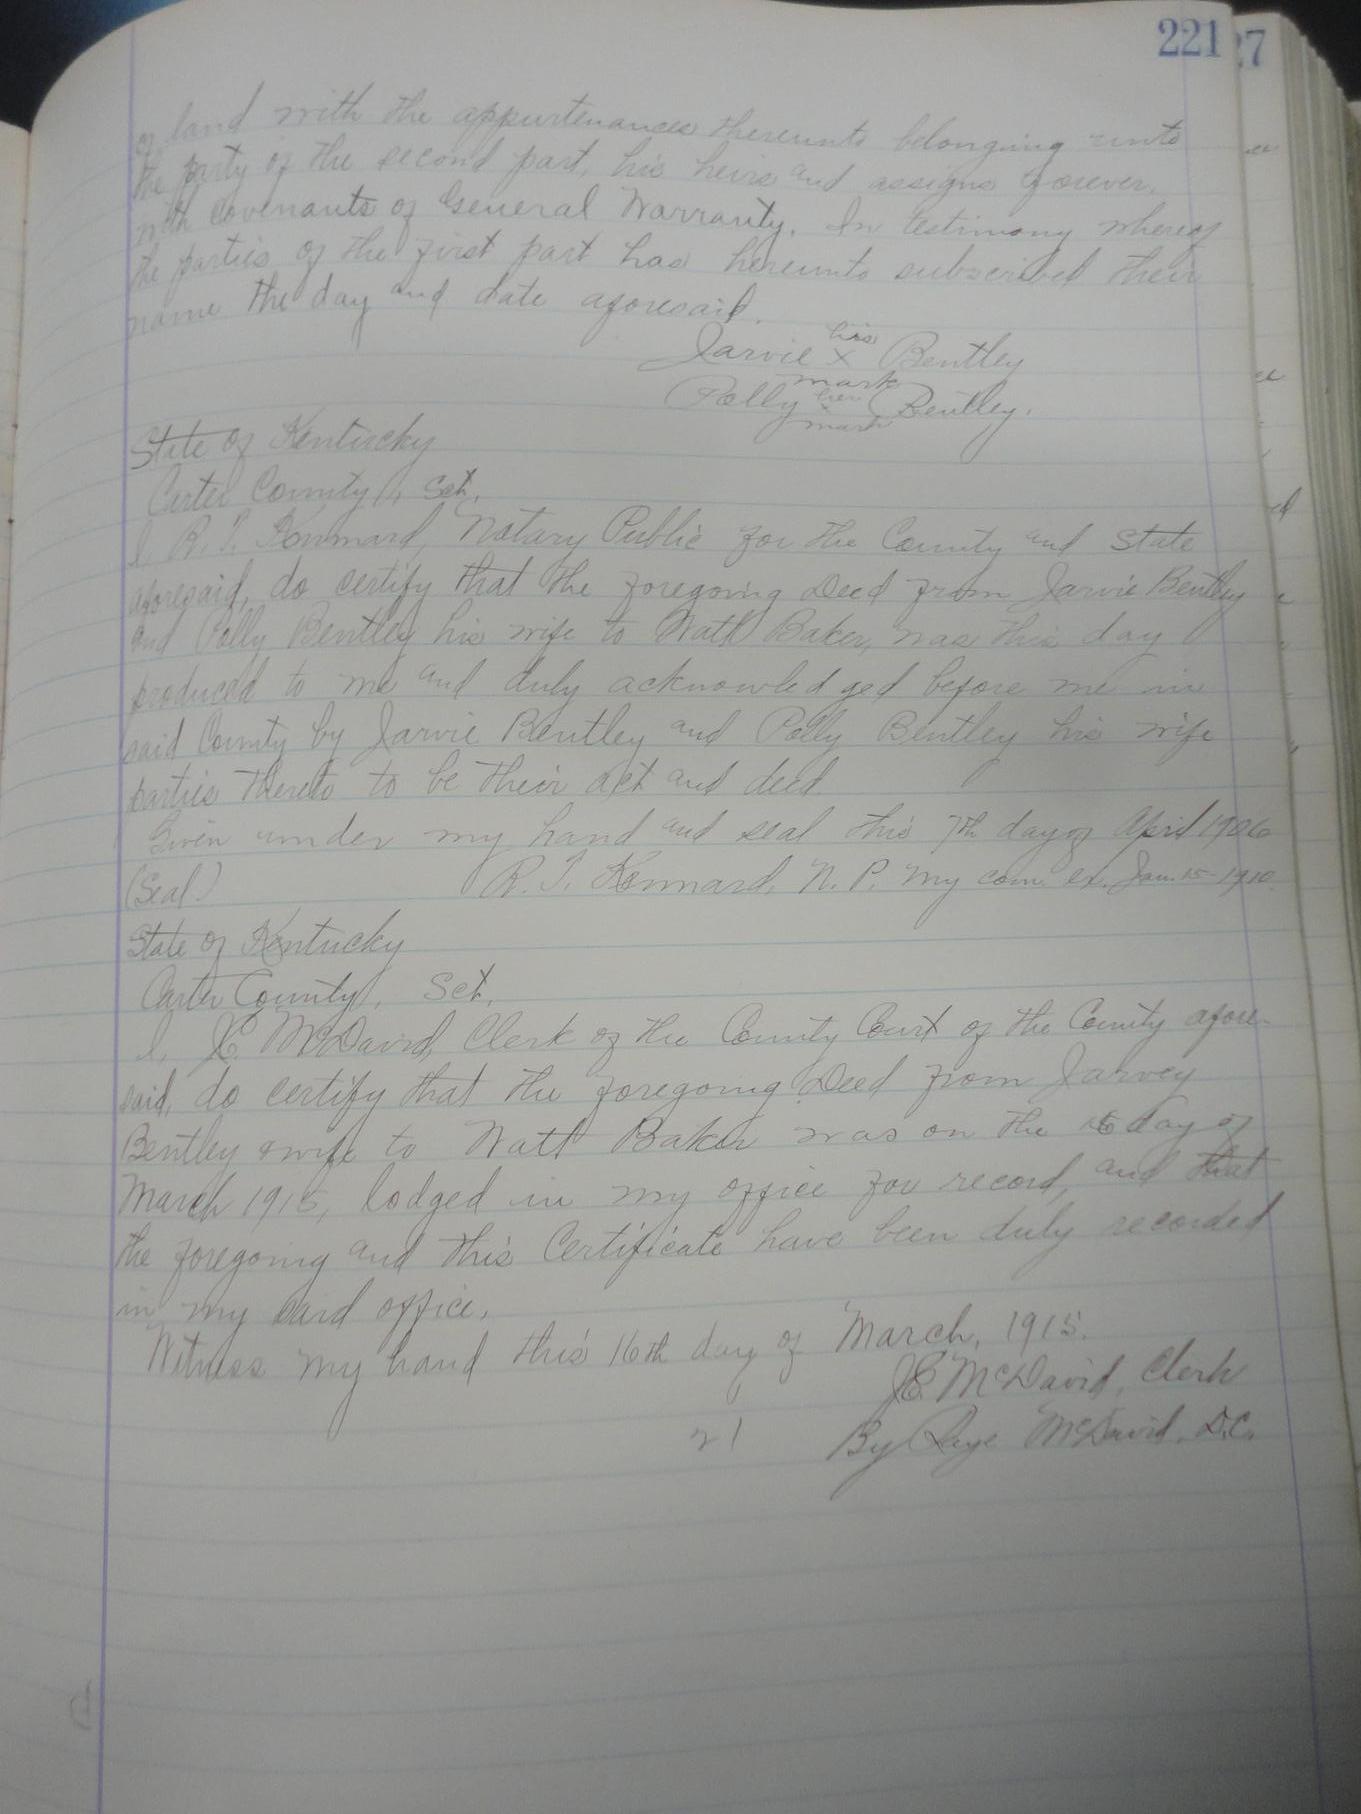 221
27
of land with the appurtenances thereunto belonging unto
the party of the second part, his heirs and assigns forever,
with covenants of General Warranty. In testimony whereof
the parties of the first part has hereunto subscribed their
name the day and date aforesaid.
his
Jarvie X Bentley
mark
her
Polly Bentley.
mark
State of Kentucky
Carter County, Sct.
I, R. T. Kennard, Notary Public for the County and State
aforesaid, do certify that the foregoing Deed from Jarvie Bentley
and Polly Bentley his wife to Watt Baker, was this day
produced to me and duly acknowledged before me in
said County by Jarvie Bentley and Polly Bentley his wife
parties thereto to be their act and deed
Given under my hand and seal this 7th day of April 1906
(Seal) R. T. Kennard, N. P. My com. ex. Jan. 15 1910.
State of Kentucky
Carter County, Sct.
I, J.E. McDavid, Clerk of the County Court of the County afore-
said, do certify that the foregoing Deed from Jarvey
Bentley & wife to Watt Baker was on the 16 day of
March 1915, lodged in my office for record, and that
the foregoing and this Certificate have been duly recorded
in my said office.
Witness my hand this 16th day of March, 1915.
J.E. McDavid, Clerk
21 By McDavid, D.C.